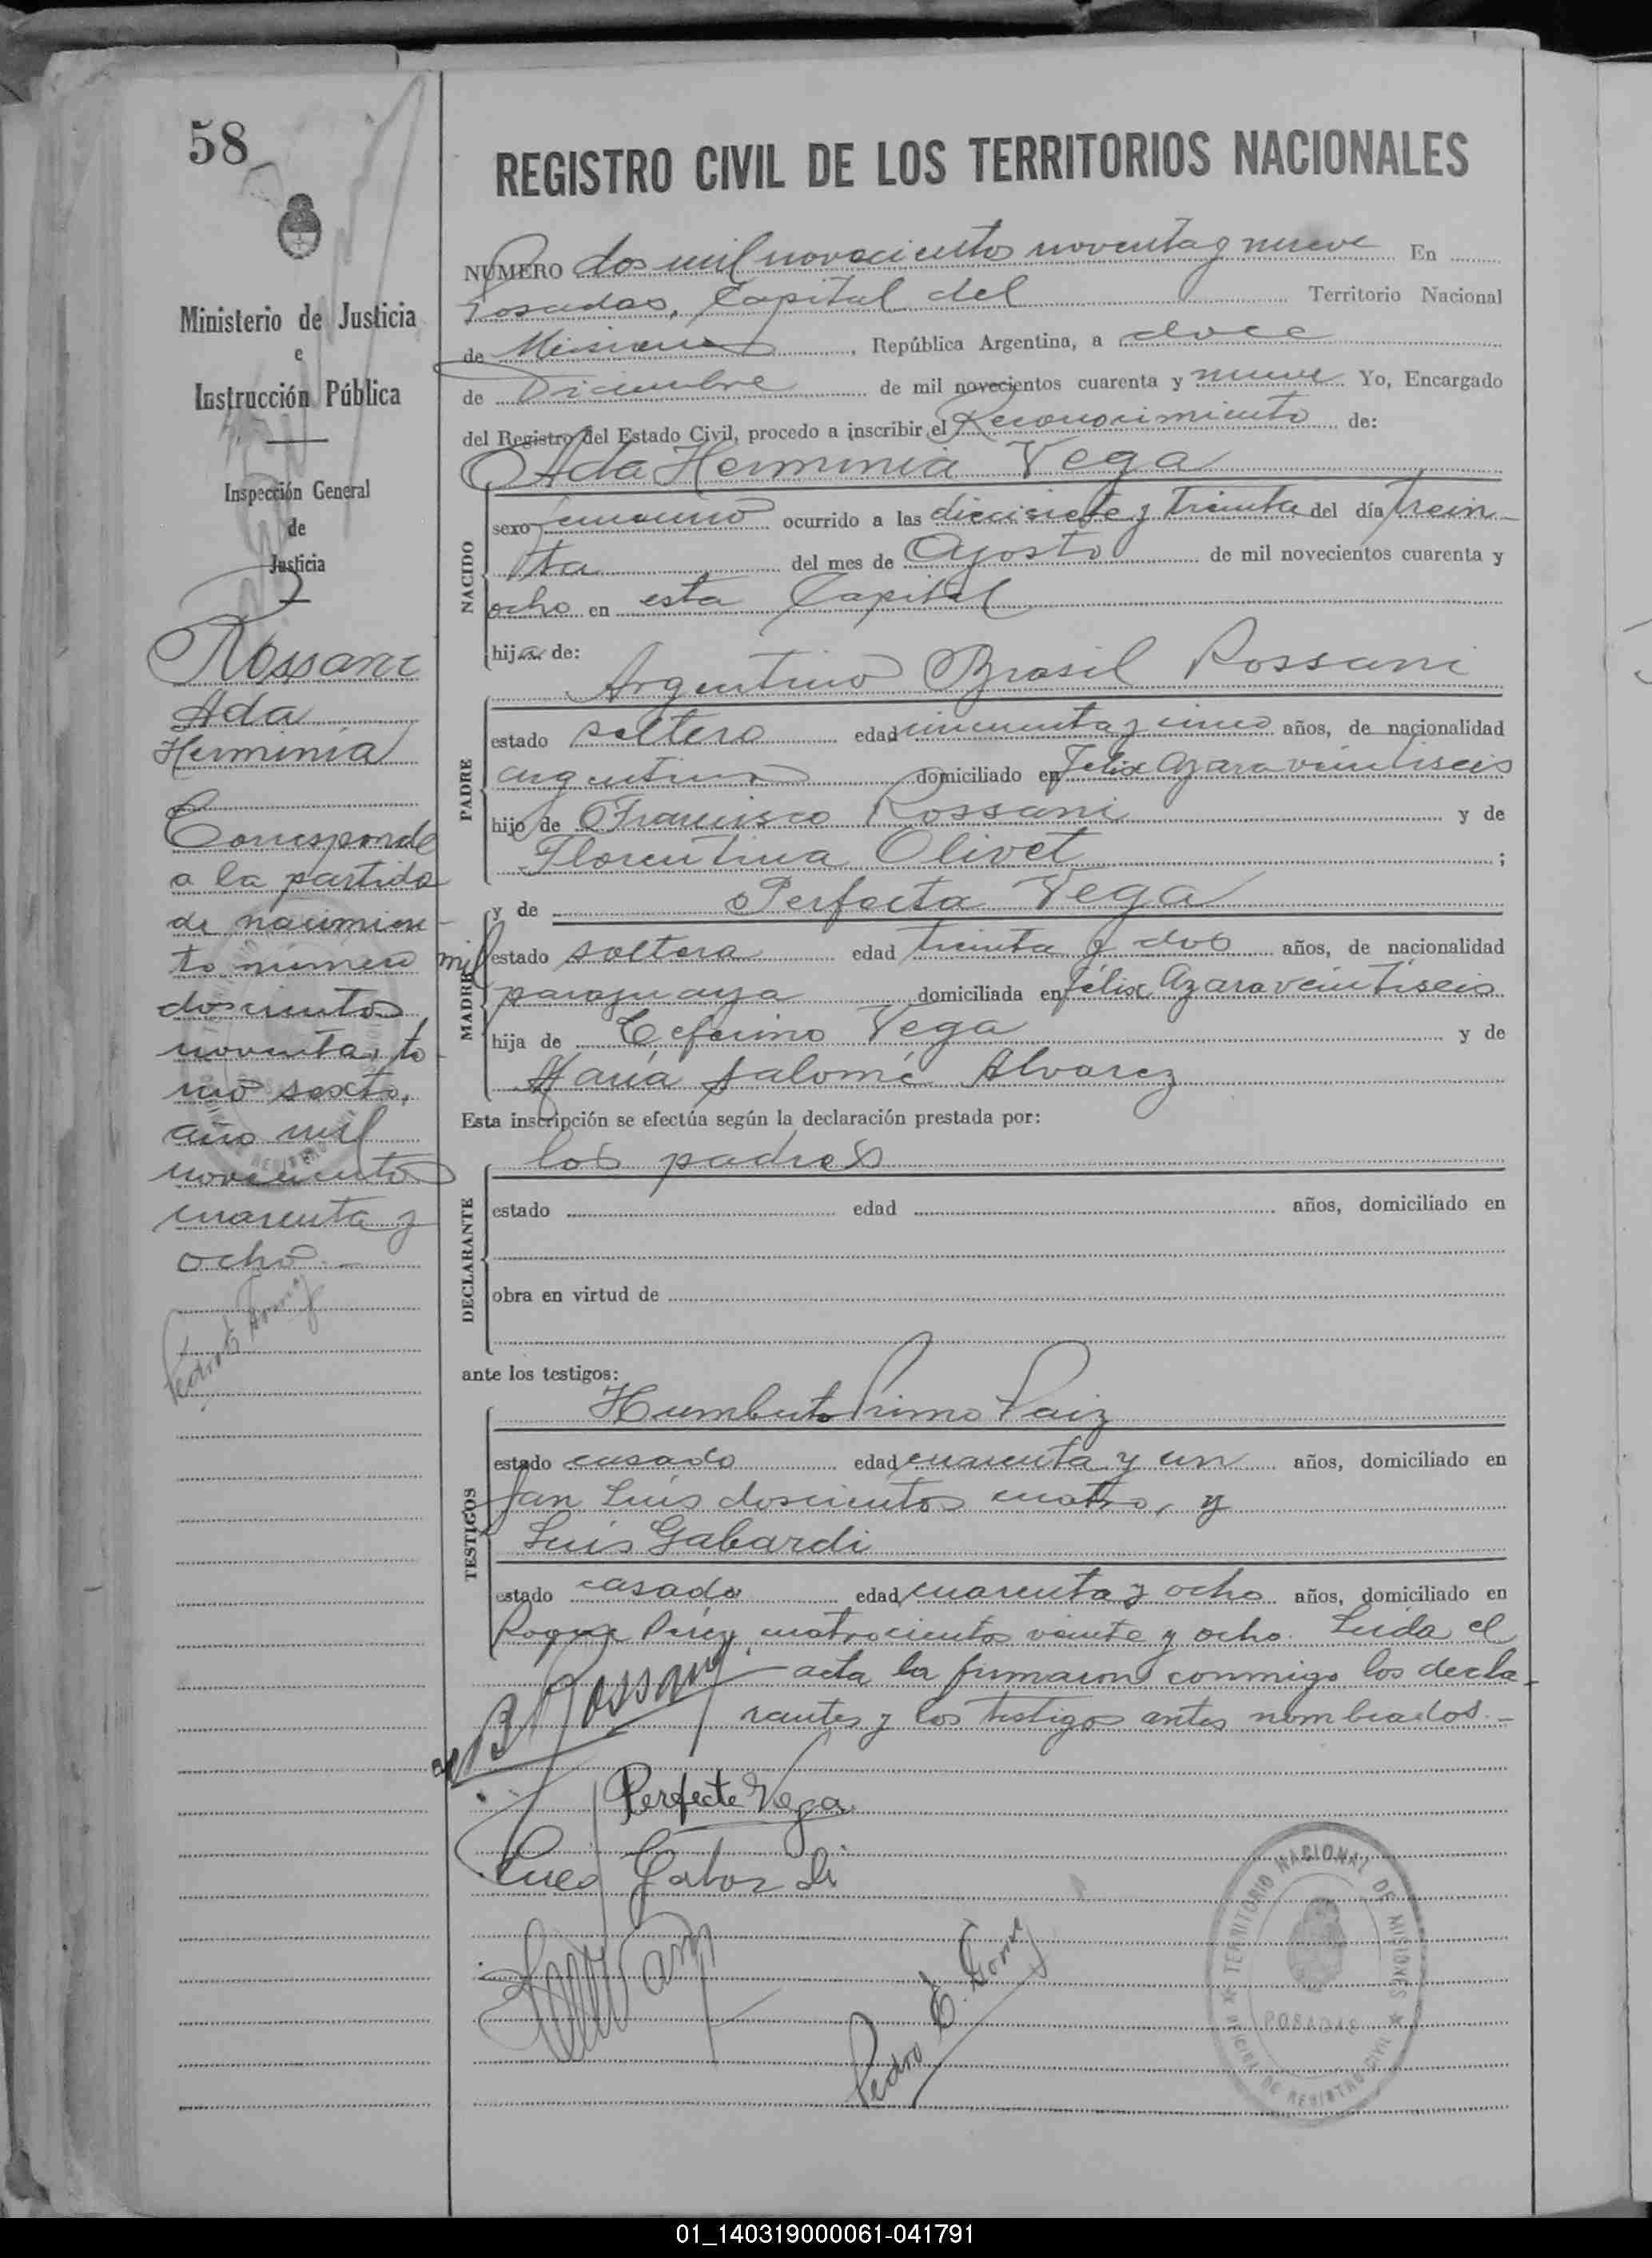 58
Ministerio de Justicia
e
Instrucción Pública
Inspección General
de
Justicia
Rossani
Ada
Herminia
Corresponde
a la partida
de nacimien-
to número mil
doscientos
noventa, to-
mo sexto,
año mil
novecientos
cuarenta y
ocho.—
REGISTRO CIVIL DE LOS TERRITORIOS NACIONALES
NÚMERO dos mil novecientos noventa y nueve En
Posadas, Capital del Territorio Nacional
de Misiones, República Argentina, a doce
de Diciembre de mil novecientos cuarenta y nueve Yo, Encargado
del Registro del Estado Civil, procedo a inscribir el Reconocimiento de:
Ada Herminia Vega
NACIDO
sexo femenino ocurrido a las diecisiete y treinta del día trein-
ta del mes de Agosto de mil novecientos cuarenta y
ocho en esta Capital
hija de:
Argentino Brasil Rossani
PADRE
estado soltero edad cincuenta y cinco años, de nacionalidad
argentina domiciliado en Félix Azara veintiseis
hijo de Francisco Rossani y de
Florentina Olivet ;
y de Perfecta Vega
MADRE
estado soltera edad treinta y dos años, de nacionalidad
paraguaya domiciliada en Félix Azara veintiseis
hija de Ceferino Vega y de
María Salomé Alvarez
Esta inscripción se efectúa según la declaración prestada por:
los padres
DECLARANTE
estado edad años, domiciliado en
obra en virtud de
ante los testigos:
Humberto Primo Paiz
TESTIGOS
estado casado edad cuarenta y un años, domiciliado en
San Luis doscientos cuatro, y
Luis Gabardi
estado casado edad cuarenta y ocho años, domiciliado en
Roque Pérez cuatrocientos veinte y ocho. Leida el
acta la firmaron conmigo los decla-
rantes y los testigos antes nombrados.—
B Rossani
Perfecta Vega
Luis Gabardi
Pedro E. Gomez
TERRITORIO NACIONAL DE MISIONES
POSADAS
OFICINA DE REGISTRO CIVIL
01_140319000061-041791